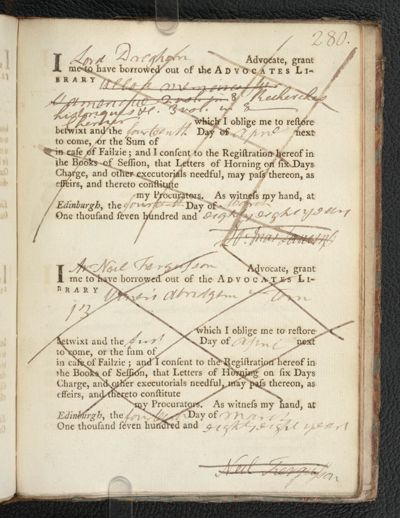 280.
I Lord Dreghorn Advocate, grant
me to have borrowed out of the ADVOCATES LI-
BRARY
8 Recherches
historiques 3 vol. in 8
which I oblige me to restore
betwixt and the fourteenth Day of April next
to come, or the Sum of
in case of Failzie; and I consent to the Registration hereof in
the Books of Session, that Letters of Horning on six Days
Charge, and other executorials needful, may pass thereon, as
effeirs, and thereto constitute
my Procurators. As witness my hand, at
Edinburgh, the fourteenth Day of
One thousand seven hundred and eighty eight years
I Mr Neil Fergusson Advocate, grant
me to have borrowed out of the ADVOCATES LI-
BRARY
which I oblige me to restore
betwixt and the first Day of April next
to come, or the sum of
in case of Failzie; and I consent to the Registration hereof in
the Books of Session, that Letters of Horning on six Days
Charge, and other executorials needful, may pass thereon, as
effeirs, and thereto constitute
my Procurators. As witness my hand, at
Edinburgh, the Day of March
One thousand seven hundred and eighty eight years
Neil Fergusson